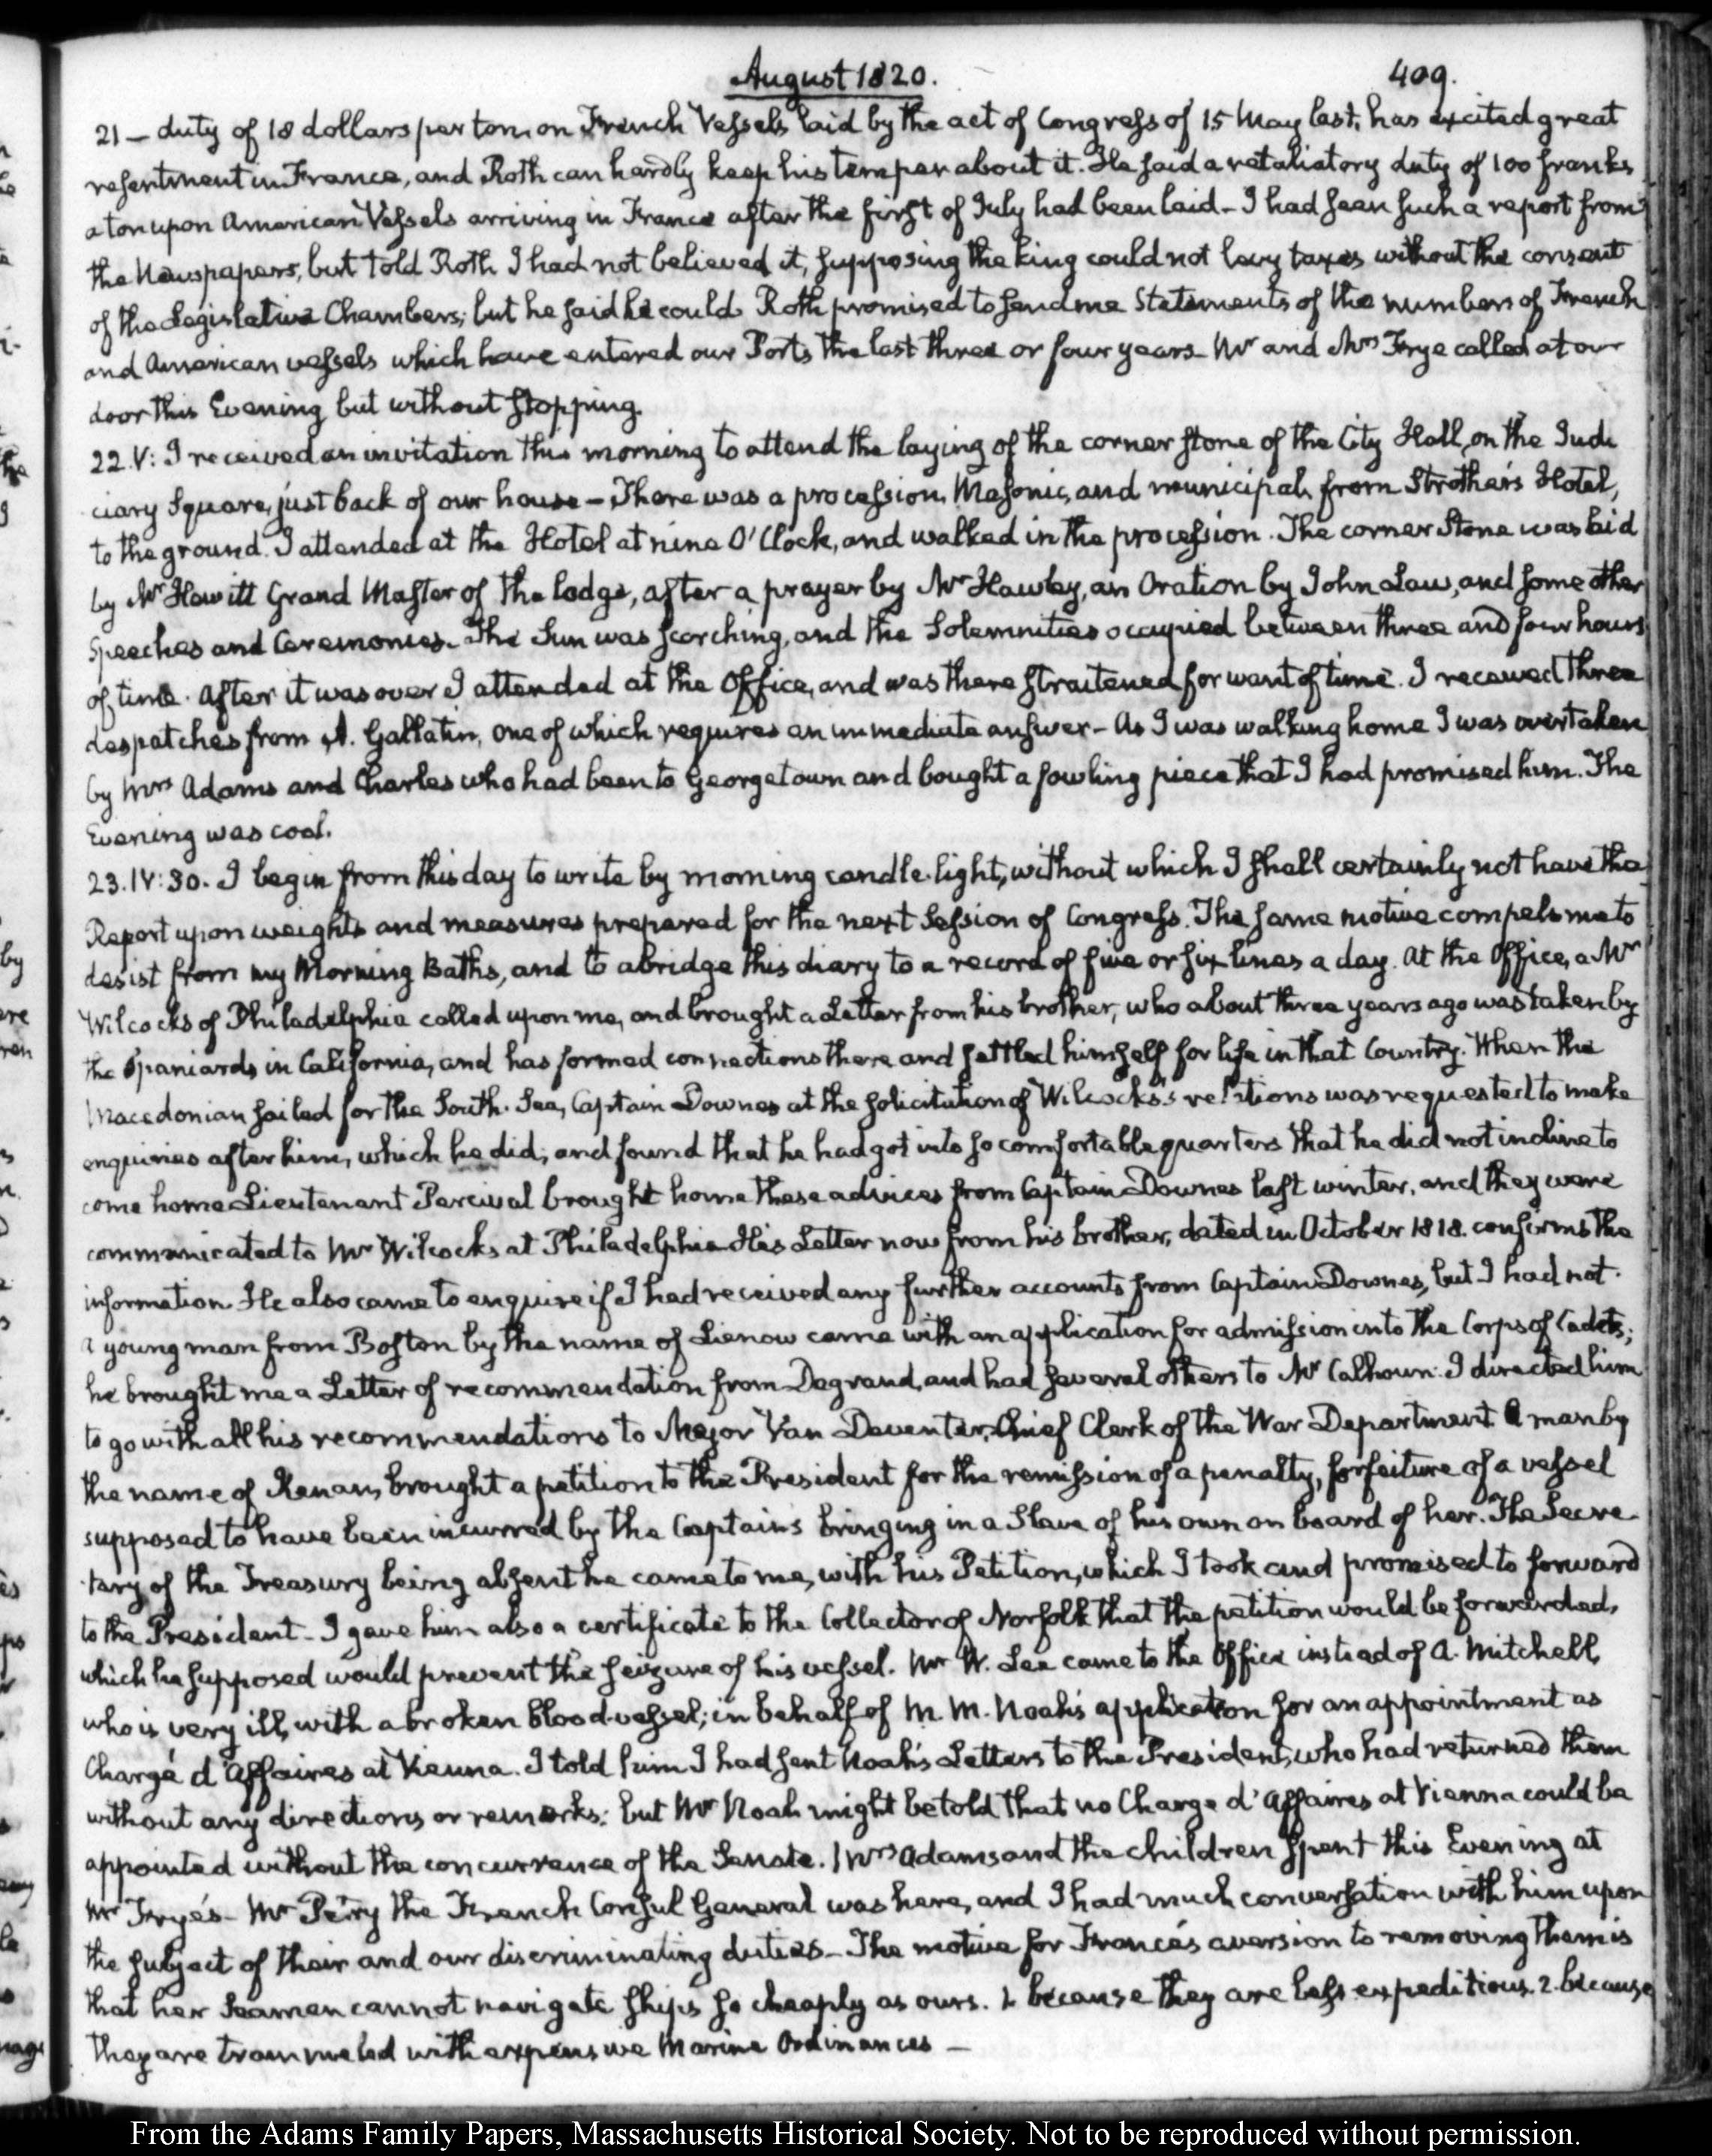 August 1820.
409.
21 — duty of 18 dollars per ton, on French Vessels laid by the act of Congress of 15 May last, has excited great
resentment in France, and Roth can hardly keep his temper about it. He said a retaliatory duty of 100 franks
a ton upon American Vessels arriving in France after the first of July had been laid — I had seen such a report from
the Newspapers, but told Roth I had not believed it, supposing the king could not levy taxes without the consent
of the Legislative Chambers; but he said he could. Roth promised to send me Statements of the numbers of French
and American vessels which have entered our Ports the last three or four years. Mr and Mrs Frye called at our
door this Evening but without stopping.
22. V: I received an invitation this morning to attend the laying of the corner stone of the City Hall, on the Judi
ciary Square, just back of our house — There was a procession, Masonic, and municipal, from Strother's Hotel,
to the ground. I attended at the Hotel at nine O'Clock, and walked in the procession. The corner Stone was laid
by Mr Hewitt Grand Master of the lodge, after a prayer by Mr Hawley, an Oration by John Law, and some other
Speeches and Ceremonies. The Sun was scorching, and the Solemnities occupied between three and four hours
of time. After it was over I attended at the Office, and was there straitened for want of time. I received three
despatches from A. Gallatin, one of which requires an immediate answer — As I was walking home I was overtaken
by Mrs Adams and Charles who had been to Georgetown and bought a fowling piece that I had promised him. The
Evening was cool.
23. IV:30. I begin from this day to write by morning candle-light, without which I shall certainly not have the
Report upon weights and measures prepared for the next Session of Congress. The same motive compels me to
desist from my Morning Baths, and to abridge this diary to a record of five or six lines a day. At the Office, a Mr
Wilcocks of Philadelphia called upon me, and brought a Letter from his brother, who about three years ago was taken by
the Spaniards in California, and has formed connections there and settled himself for life in that Country. When the
Macedonian sailed for the South-Sea, Captain Downes at the solicitation of Wilcocks's relations was requested to make
enquiries after him, which he did; and found that he had got into so comfortable quarters that he did not incline to
come home. Lieutenant Percival brought home these advices from Captain Downes last winter, and they were
communicated to Mr Wilcocks at Philadelphia. His Letter now from his brother, dated in October 1818. confirms the
information. He also came to enquire if I had received any further accounts from Captain Downes, but I had not.
A young man from Boston by the name of Lienow came with an application for admission into the Corps of Cadets;
he brought me a Letter of recommendation from Degrand, and had several others to Mr Calhoun. I directed him
to go with all his recommendations to Major Van Deventer, Chief Clerk of the War Department. A man by
the name of Kenan, brought a petition to the President for the remission of a penalty, forfeiture of a vessel
supposed to have been incurred by the Captain's bringing in a Slave of his own on board of her. The Secre
tary of the Treasury being absent he came to me, with his Petition, which I took and promised to forward
to the President — I gave him also a certificate to the Collector of Norfolk that the petition would be forwarded,
which he supposed would prevent the seizure of his vessel. Mr W. Lee came to the Office instead of A. Mitchell,
who is very ill, with a broken blood-vessel; in behalf of M. M. Noah's application for an appointment as
Chargé d'Affaires at Vienna. I told him I had sent Noah's Letters to the President, who had returned them
without any directions or remarks: but Mr Noah might be told that no Chargé d'Affaires at Vienna could be
appointed without the concurrence of the Senate. Mrs Adams and the children spent this Evening at
Mr Frye's — Mr Petry the French Consul General was here, and I had much conversation with him upon
the subject of their and our discriminating duties — The motive for France's aversion to removing them is
that her Seamen cannot navigate ships so cheaply as ours. 1. because they are less expeditious. 2. because
they are trammeled with expensive Marine Ordinances —
From the Adams Family Papers, Massachusetts Historical Society. Not to be reproduced without permission.